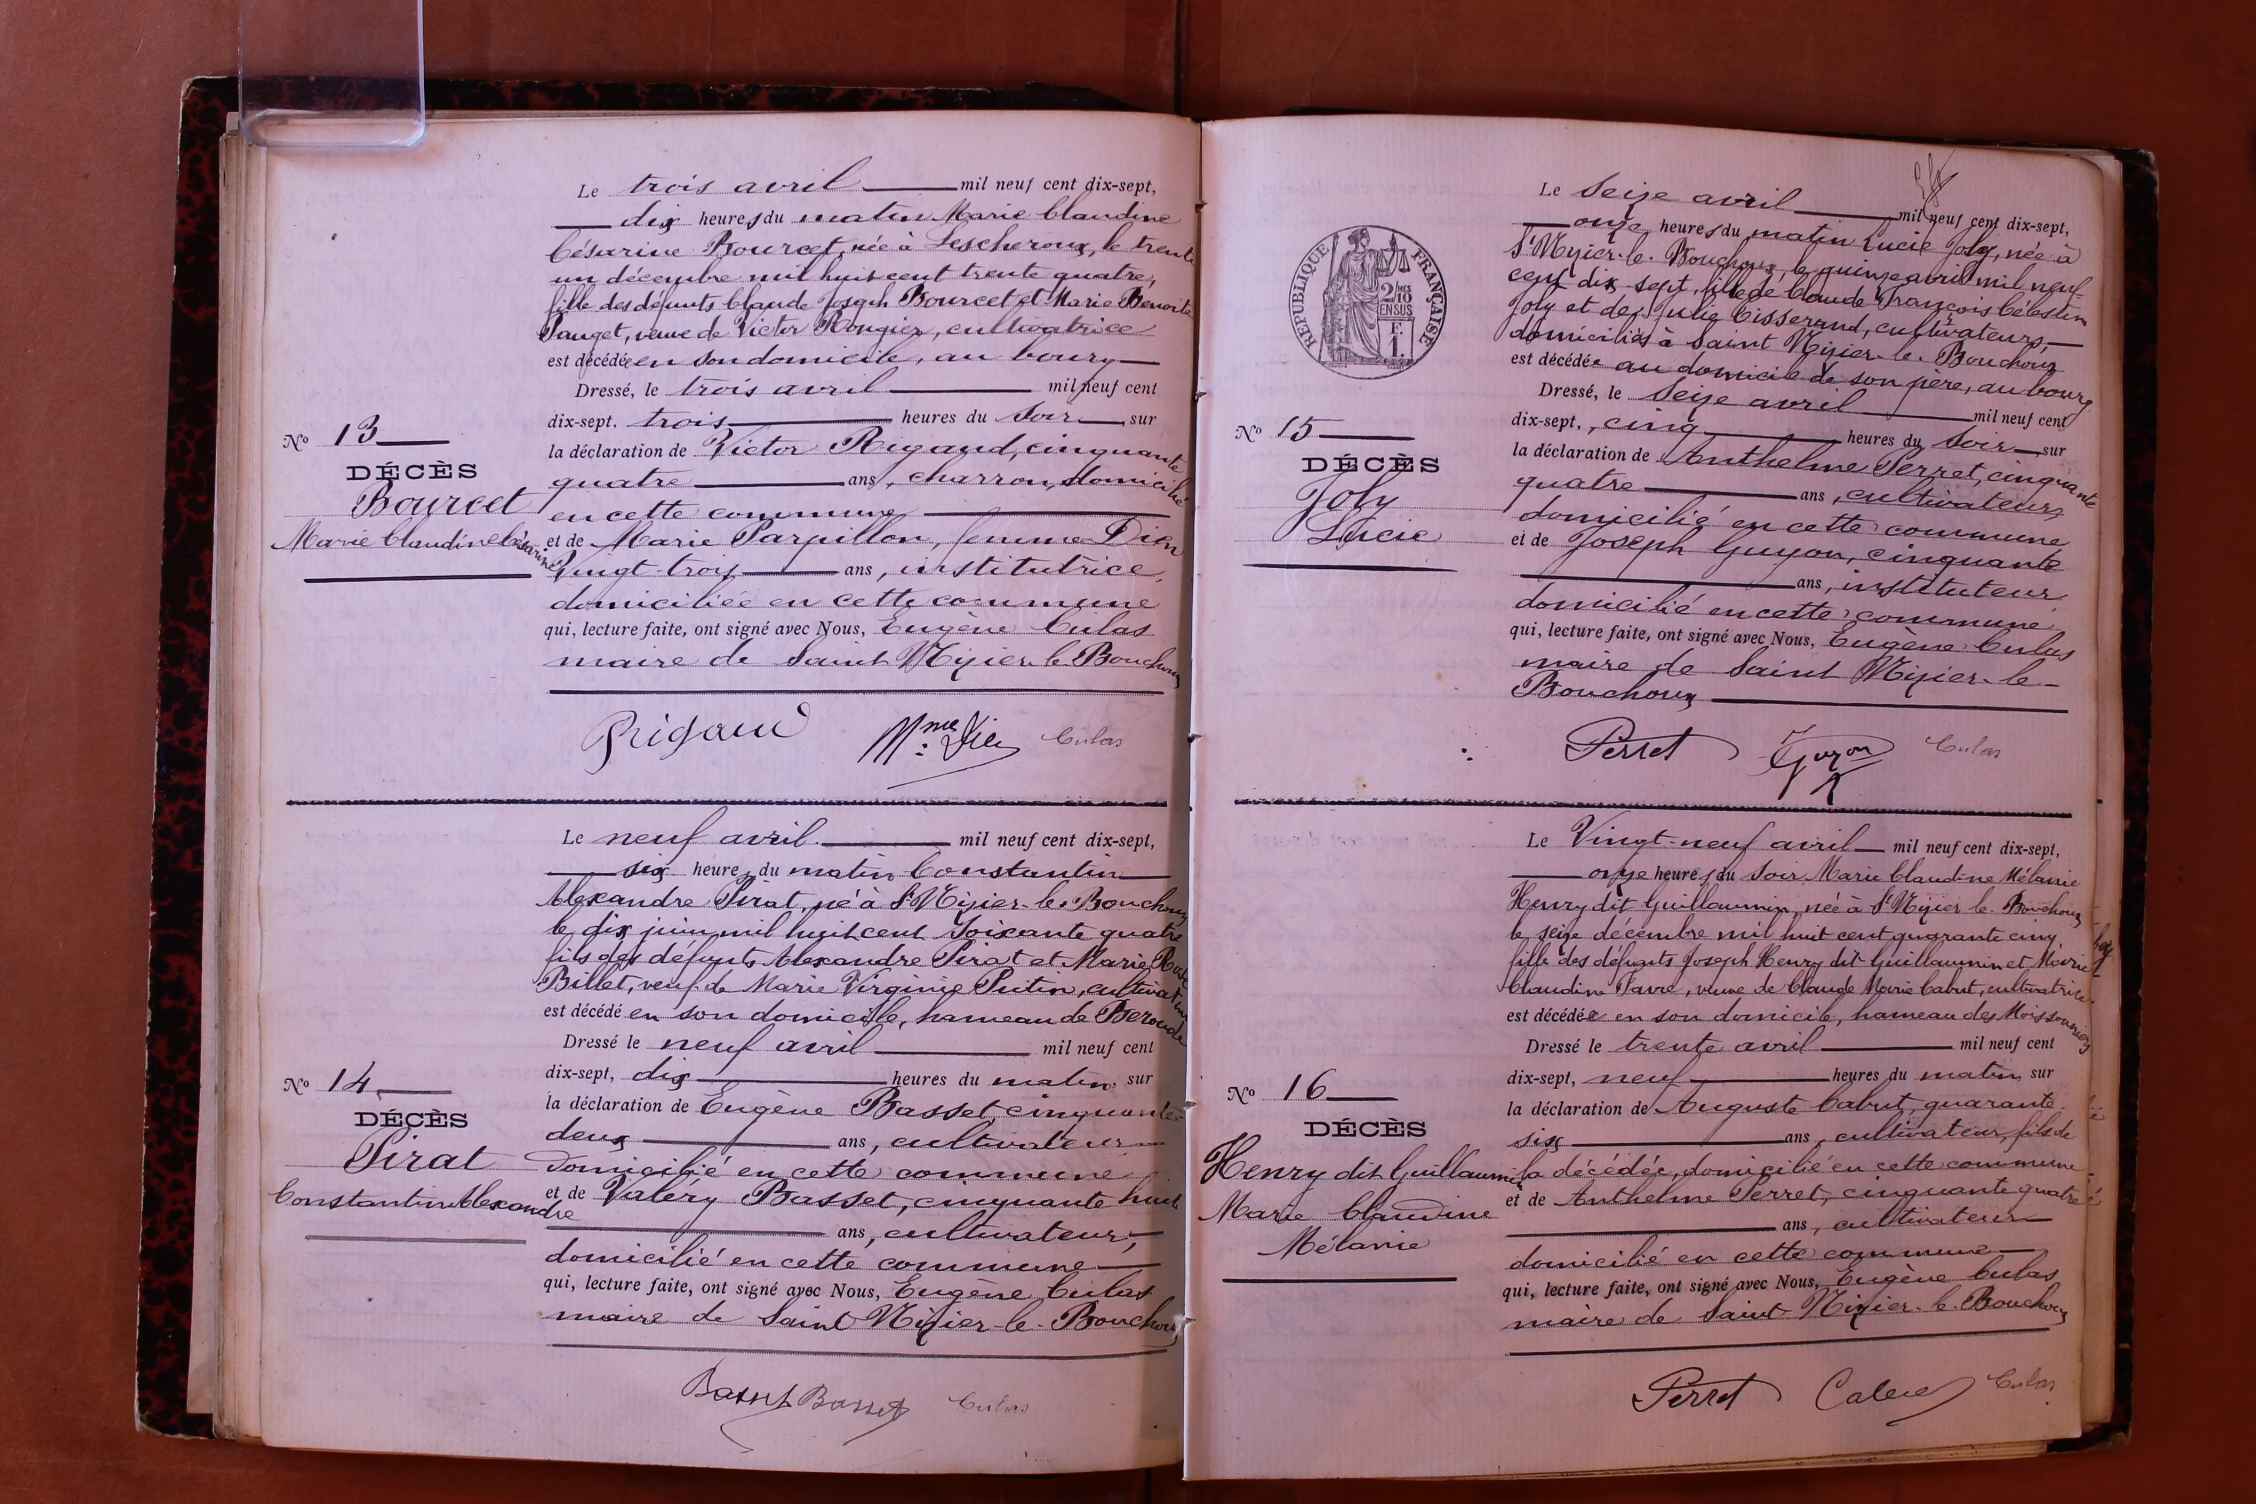 Le trois avril mil neuf cent dix-sept,
dix heures du matin Marie Claudine
Césarine Bourcet, née à Lescheroux, le trente
un décembre mil huit cent trente quatre,
fille des défunts Claude Joseph Bourcet et Marie Benoite
Pauget, veuve de Victor Rougier, cultivatrice
est décédée en son domicile, au bourg
Dressé, le trois avril mil neuf cent
dix-sept, trois heures du soir sur
Nº 13
la déclaration de Victor Rigaud, cinquante
DÉCÈS
quatre ans, charron, domicilié
Bourcet
en cette commune
Marie Claudine Césarine
et de Marie Parpillon, femme Dien
Vingt-trois ans, institutrice,
domiciliée en cette commune
qui, lecture faite, ont signé avec Nous, Eugène Culas
maire de Saint Nizier-le-Bouchoux
Rigaud Mme Dien Culas
Le neuf avril mil neuf cent dix-sept,
six heures du matin Constantin
Alexandre Pirat, né à St Nizier-le-Bouchoux
le dix juin mil huit cent soixante quatre
fils des défunts Alexandre Pirat et Marie Rose
Billet, veuf de Marie Virginie Putin, cultivateur
est décédé en son domicile, hameau de Beroude
Dressé le neuf avril mil neuf cent
dix-sept, dix heures du matin sur
Nº 14
la déclaration de Eugène Basset, cinquante-
DÉCÈS
deux ans, cultivateur
Pirat
domicilié en cette commune
Constantin Alexandre
et de Valéry Basset, cinquante huit
ans, cultivateur,
domicilié en cette commune
qui, lecture faite, ont signé avec Nous, Eugène Culas
maire de Saint Nizier-le-Bouchoux
Basset Basset Culas
RÉPUBLIQUE FRANÇAISE
2/10
EN SUS
F.
1.
Le Seize avril mil neuf cent dix-sept,
onze heures du matin Lucie Joly, née à
St Nizier-le-Bouchoux, le quinze avril mil neuf
cent dix-sept, fille de Claude François Célestin
Joly et de Julie Tisserand, cultivateurs,
domiciliés à Saint Nizier-le-Bouchoux
est décédée au domicile de son père, au bourg
Dressé, le Seize avril mil neuf cent
dix-sept, cinq heures du soir sur
Nº 15
la déclaration de Anthelme Perret, cinquante
DÉCÈS
quatre ans, cultivateur,
Joly
domicilié en cette commune
Lucie
et de Joseph Guyon, cinquante
ans, instituteur
domicilié en cette commune
qui, lecture faite, ont signé avec Nous, Eugène Culas
maire de Saint Nizier-le-
Bouchoux
Perret Guyon Culas
Le Vingt-neuf avril mil neuf cent dix-sept,
onze heures du soir Marie Claudine Mélanie
Henry dit Guillaumin, née à St Nizier le Bouchoux
le seize décembre mil huit cent quarante cinq
fille des défunts Joseph Henry dit Guillaumin et Marie
Claudine Favre, veuve de Claude Marie Cabut, cultivatrice
est décédée en son domicile, hameau des Moissonniers
Dressé le trente avril mil neuf cent
dix-sept, neuf heures du matin sur
Nº 16
la déclaration de Auguste Cabut, quarante
DÉCÈS
six ans, cultivateur, fils de
Henry dit Guillaumin
la décédée, domicilié en cette commune
Marie Claudine
et de Anthelme Perret, cinquante quatre
Mélanie
ans, cultivateur
domicilié en cette commune
qui, lecture faite, ont signé avec Nous, Eugène Culas
maire de Saint Nizier-le-Bouchoux
Perret Cabut Culas